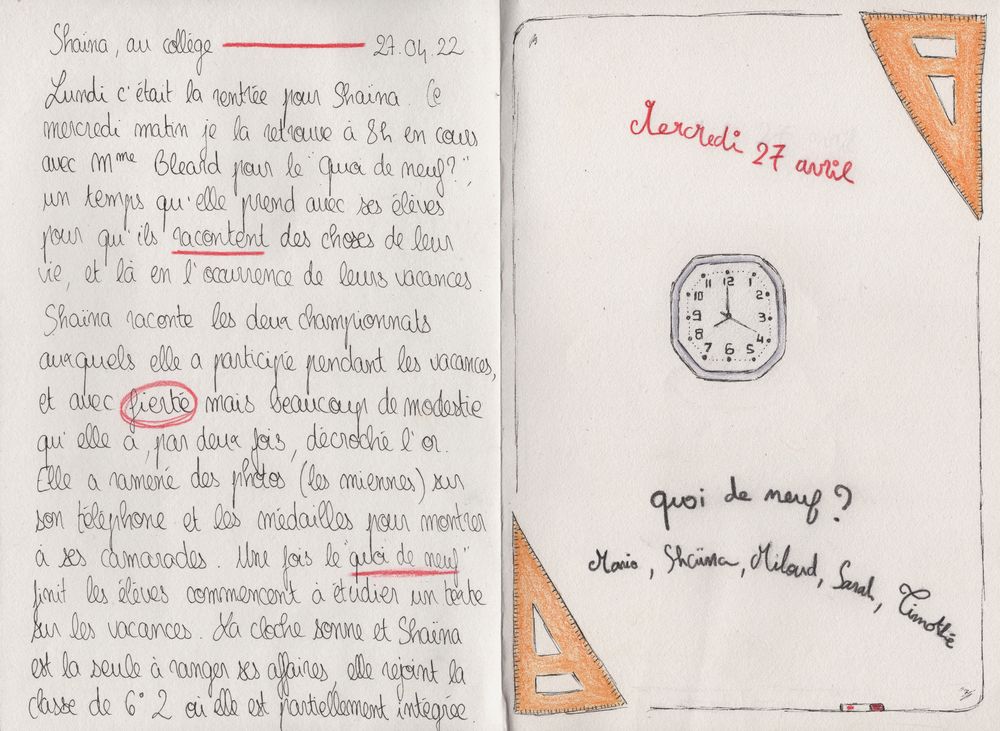 Shaïna, au collège 27.04.22
Lundi c'était la rentrée pour Shaïna. Ce
mercredi matin je la retrouve à 8h en cours
avec Mme Bleard pour le "quoi de neuf?",
un temps qu'elle prend avec ses élèves
pour qu'ils racontent des choses de leur
vie, et là en l'ocurrence de leurs vacances.
Shaïna raconte les deux championnats
auxquels elle a participé pendant les vacances,
et avec fierté mais beaucoup de modestie
qu'elle a, par deux fois, décroché l'or.
Elle a ramené des photos (les miennes) sur
son téléphone et les médailles pour montrer
à ses camarades. Une fois le "quoi de neuf"
finit les élèves commencent à étudier un texte
sur les vacances. La cloche sonne et Shaïna
est la seule à ranger ses affaires, elle rejoint la
classe de 6°2 où elle est partiellement intégrée.
Mercredi 27 avril
11 12 1
10 2
9 3
8 4
7 6 5
quoi de neuf ?
Mario, Shaïma, Miloud, Sarah, Timothée